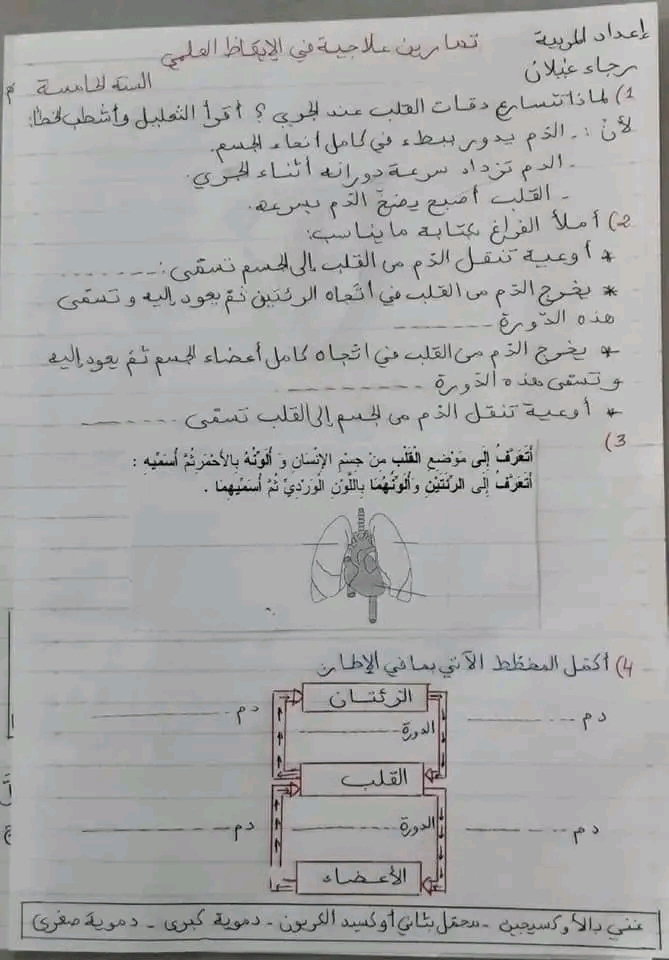 إعداد المربية
رجاء غيلان
تمارين علاجية في الإيقاظ العلمي
السنة الخامسة م
1) لماذا تتسارع دقات القلب عند الجري ؟ أقرأ التعليل وأشطب الخطأ:
لأنّ : - الدّم يدور ببطء في كامل أنحاء الجسم.
- الدم تزداد سرعة دورانه أثناء الجري.
- القلب أصبح يضخّ الدّم بسرعة.
2) أملأ الفراغ بكتابة ما يناسب:
* أوعية تنقل الدّم من القلب إلى الجسم تسمّى: --------
* يخرج الدّم من القلب في اتّجاه الرئتين ثمّ يعود إليه و تسمّى
هذه الدّورة --------
* يخرج الدّم من القلب في اتّجاه كامل أعضاء الجسم ثمّ يعود إليه
و تسمّى هذه الدّورة --------
* أوعية تنقل الدّم من الجسم إلى القلب تسمّى --------
3)
أَتَعَرَّفُ إِلَى مَوْضِعِ الْقَلْبِ مِنْ جِسْمِ الإِنْسَانِ وَ أُلَوِّنُهُ بِالأَحْمَرِ ثُمَّ أُسَمِّيهِ :
أَتَعَرَّفُ إِلَى الرِّئَتَيْنِ وَأُلَوِّنُهُمَا بِاللَّوْنِ الْوَرْدِيِّ ثُمَّ أُسَمِّيهِمَا .
4) أكمل المخطّط الآتي بما في الإطار:
الرئتان
دم --------
دم --------
الدورة --------
القلب
الدورة --------
دم --------
دم --------
الأعضاء
غني بالأوكسيجين - محمّل بثاني أوكسيد الكربون - دموية كبرى - دموية صغرى